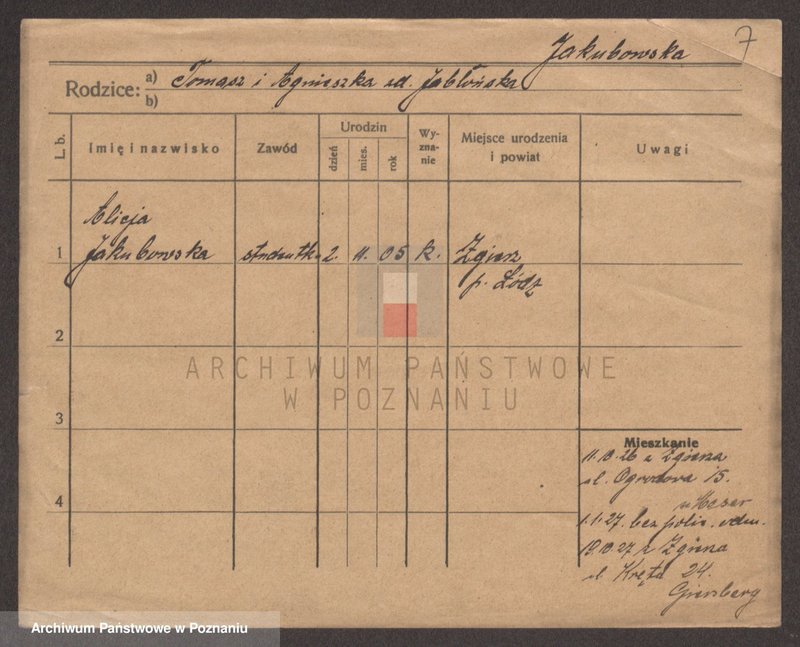 7
Jakubowska
Rodzice: a) Tomasz i Agnieszka zd. Jabłońska
b)
L. b.
Imię i nazwisko
Zawód
Urodzin
dzień
mies.
rok
Wy-
zna-
nie
Miejsce urodzenia
i powiat
Uwagi
Alicja
1 Jakubowska studentka 2. 11. 05 k. Zgierz
p. Łódź
2
ARCHIWUM PAŃSTWOWE
W POZNANIU
3
Mieszkanie
11.10.26 z Zgierza
ul. Ogrodowa 15.
u
4
1.1.27. bez polic. odm.
10.27 z Zgierza
ul. Kręta 24.
Archiwum Państwowe w Poznaniu